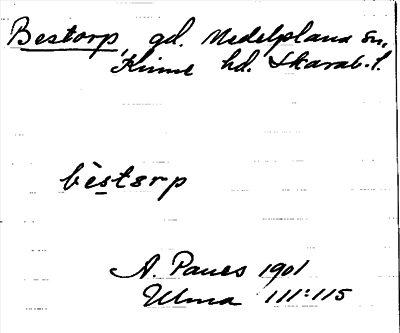 Bestorp, gd. Medelplana sn,
Kinne hd. Skarab. l.
bèstɔrp
A. Paues 1901
Ulma 111:115